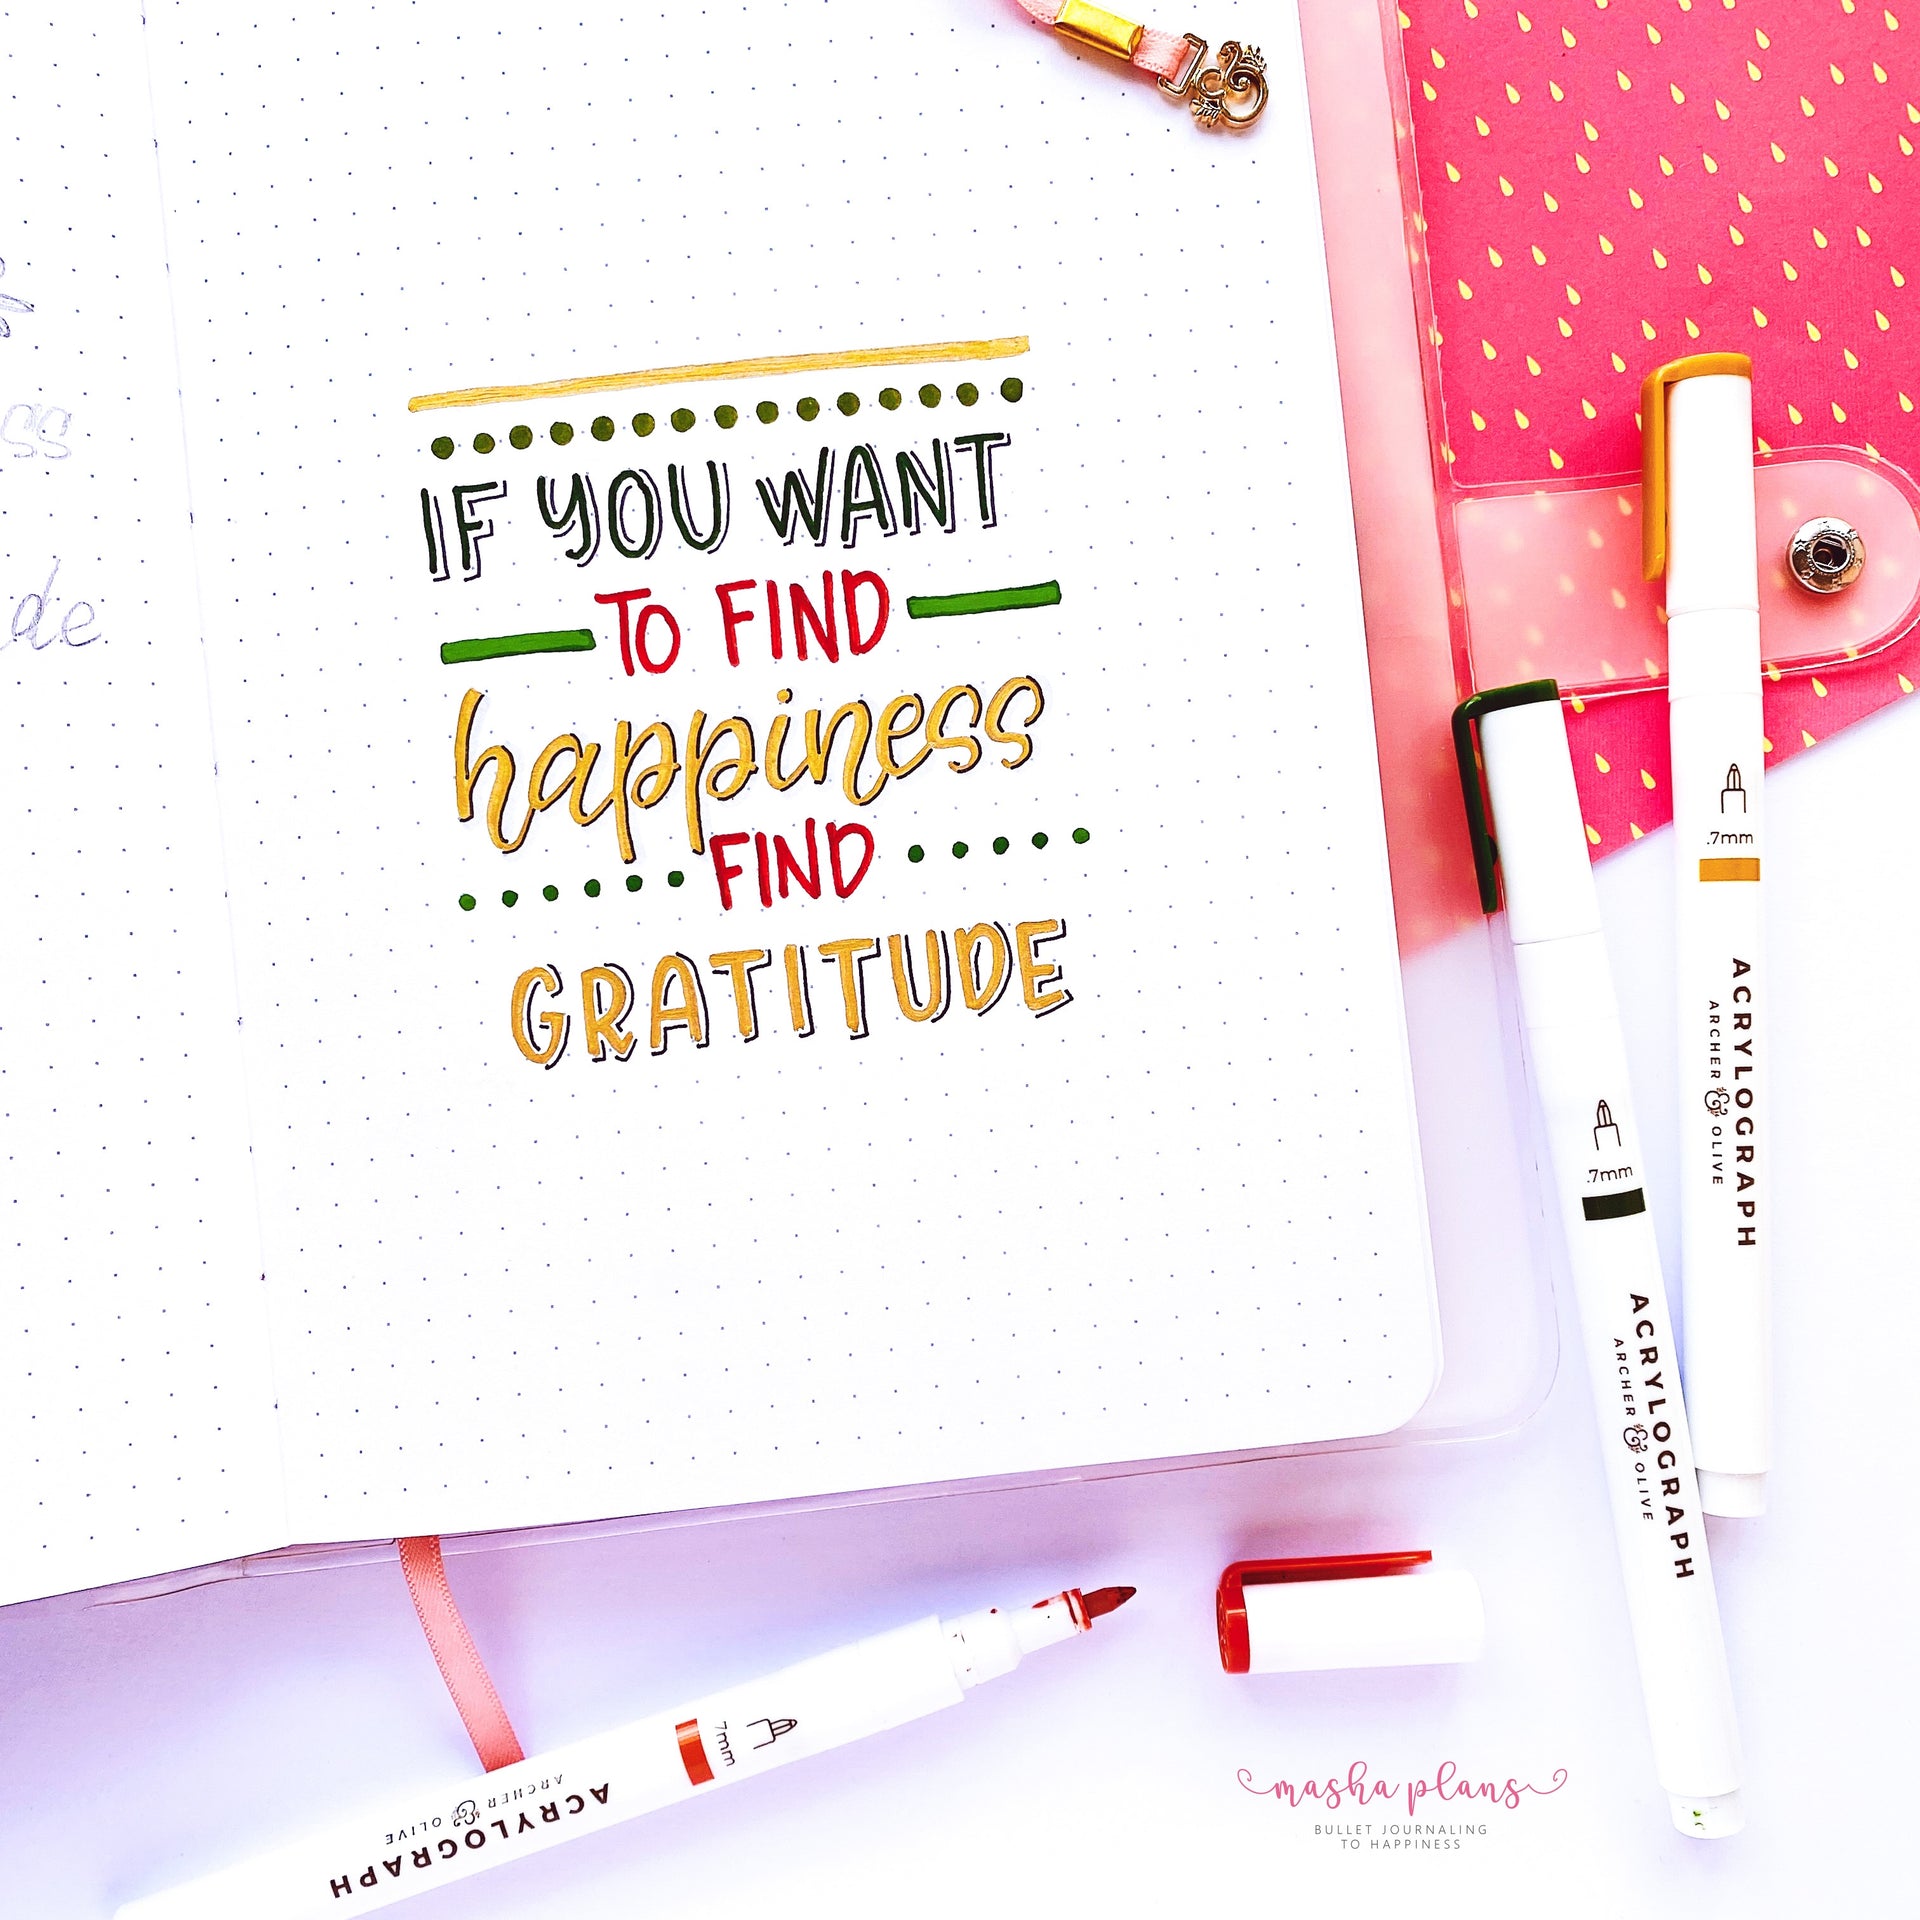 ss
de
IF YOU WANT
TO FIND
happiness
FIND
GRATITUDE
.7mm
ACRYLOGRAPH
ARCHER & OLIVE
.7mm
ACRYLOGRAPH
ARCHER & OLIVE
.7mm
ACRYLOGRAPH
ARCHER & OLIVE
masha plans
BULLET JOURNALING
TO HAPPINESS